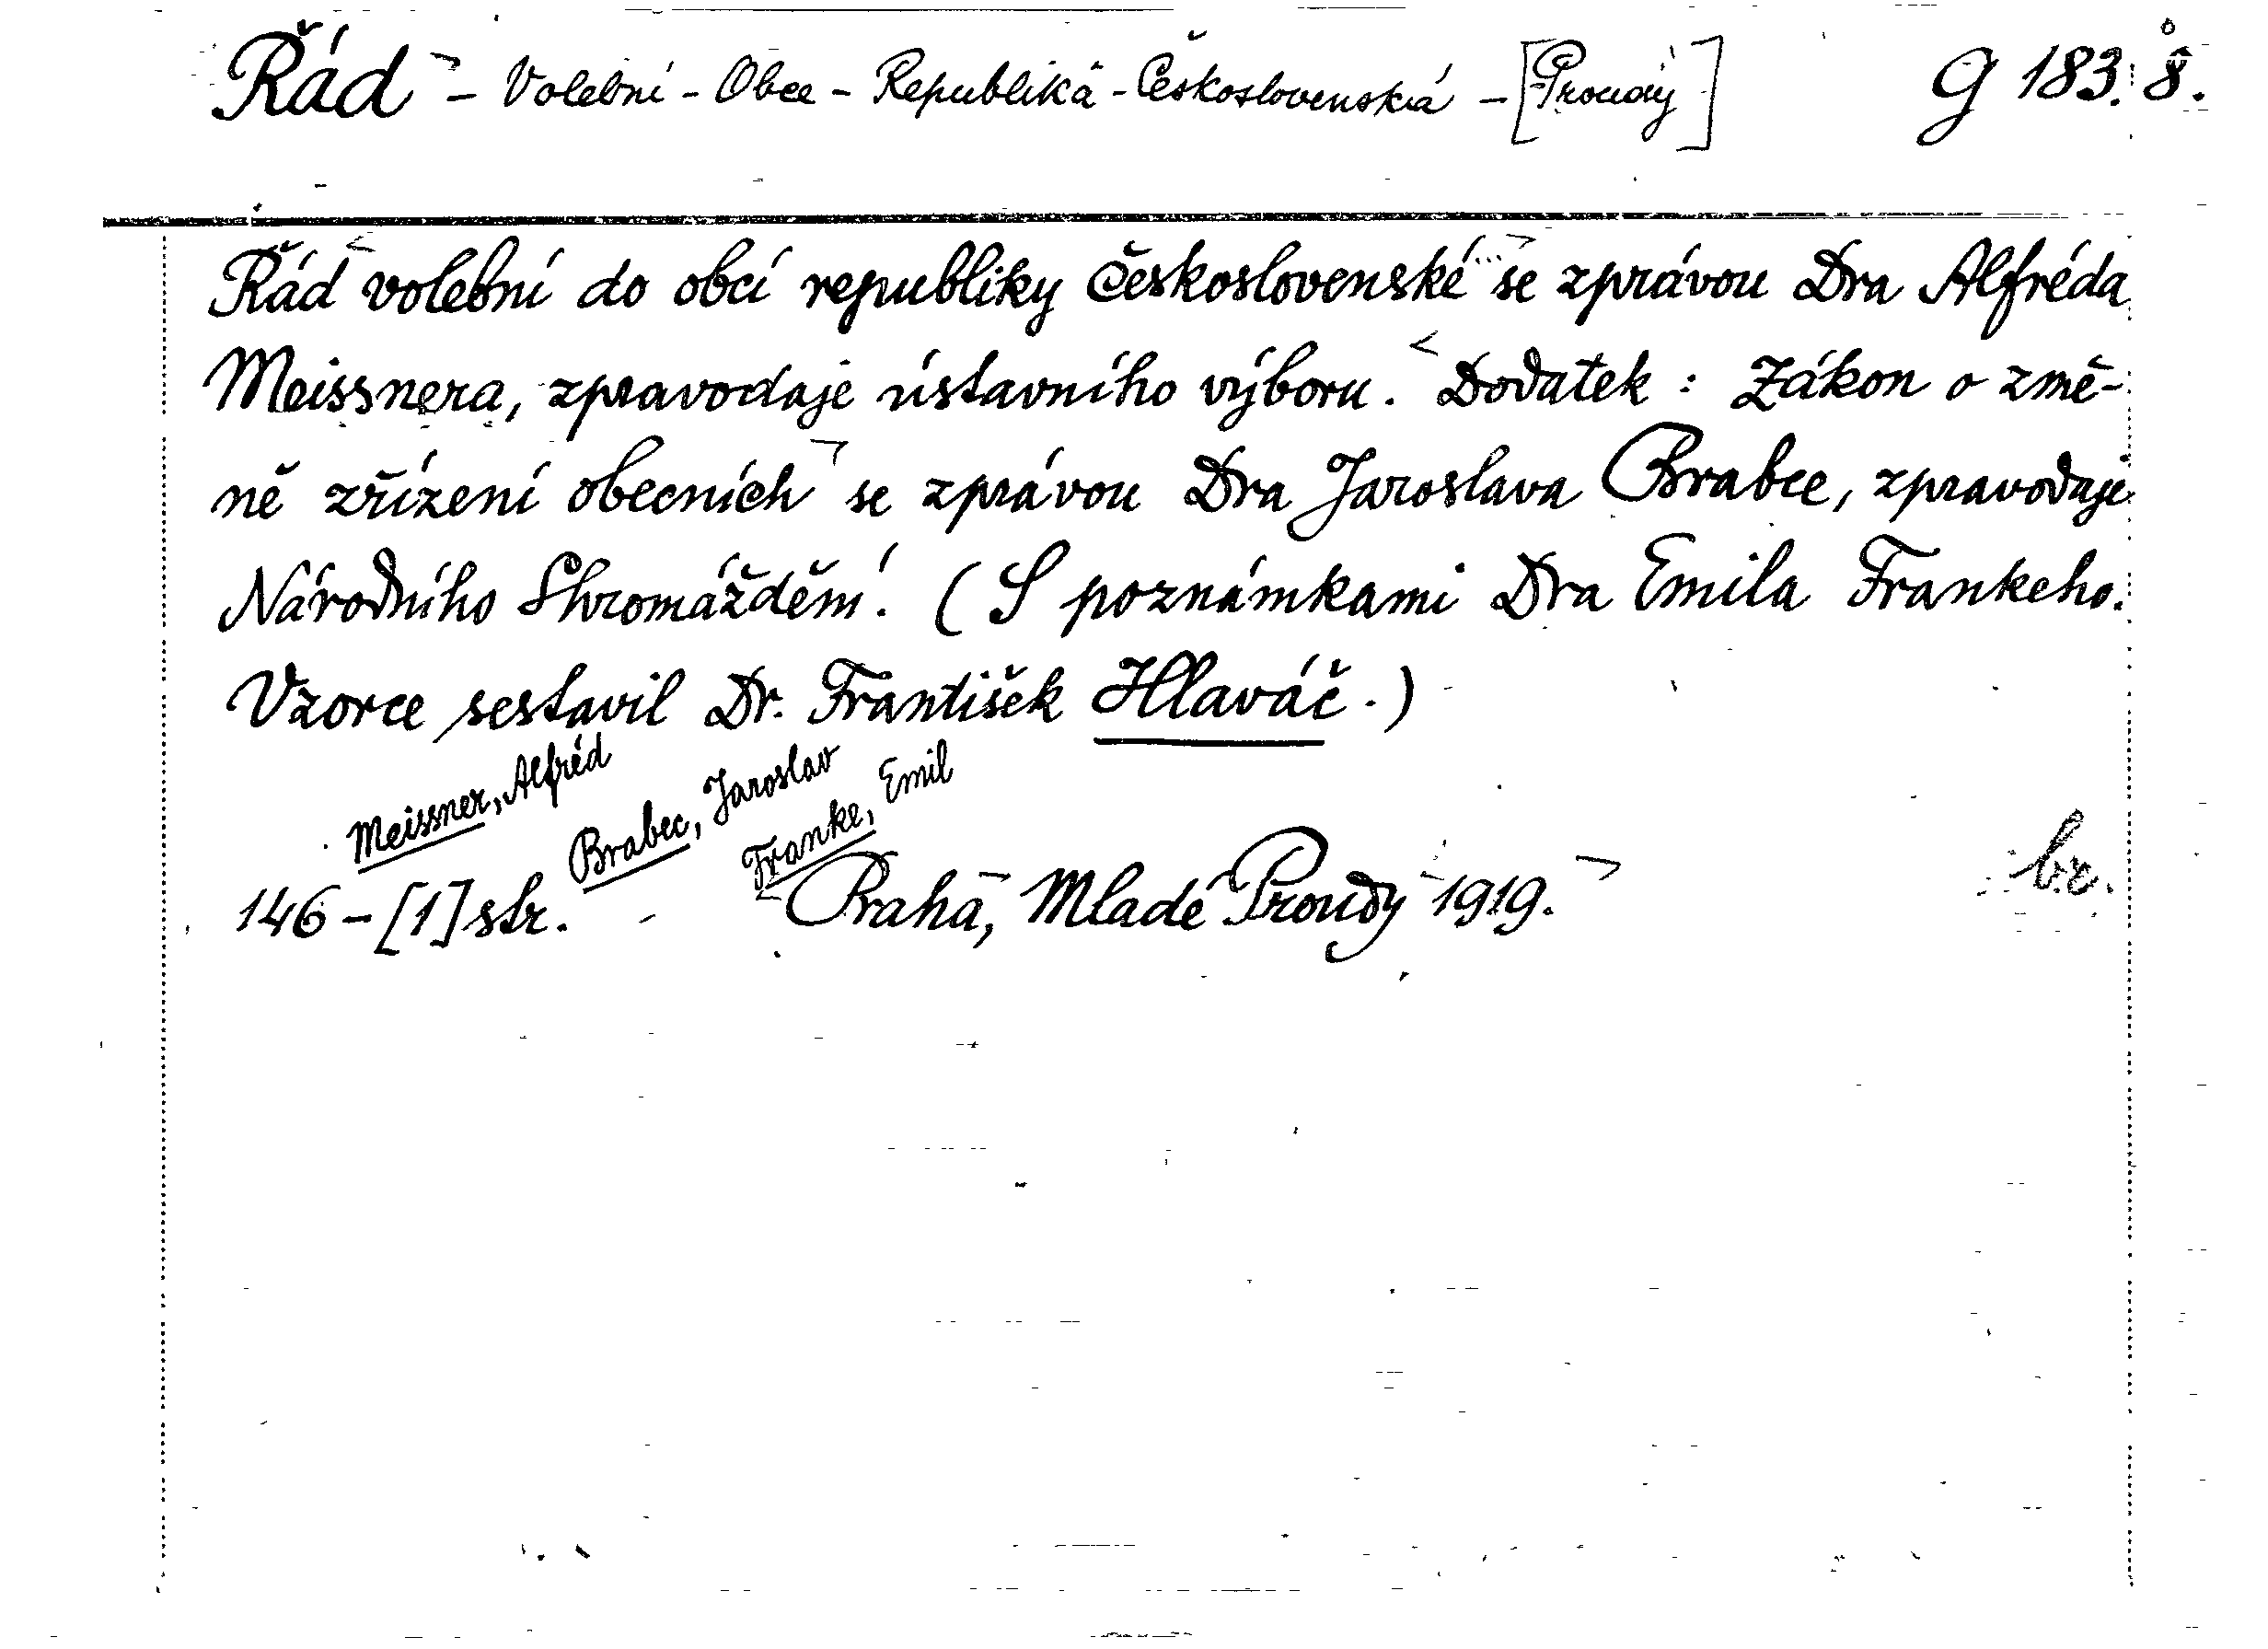 Řád - Volební - Obce - Republika - Československá - [Proudy] G 183. 8.
Řád volební do obcí republiky Československé se zprávou Dra Alfréda
Meissnera, zpravodaje ústavního výboru. Dodatek: Zákon o změ-
ně zřízení obecních se zprávou Dra Jaroslava Brabce, zpravodaje
Národního Shromáždění. (S poznámkami Dra Emila Frankeho.
Vzorce sestavil Dr. František Hlaváč.)
Meissner, Alfréd
Brabec, Jaroslav
Franke, Emil
146 - [1] str. - Praha, Mladé Proudy 1919.
br.